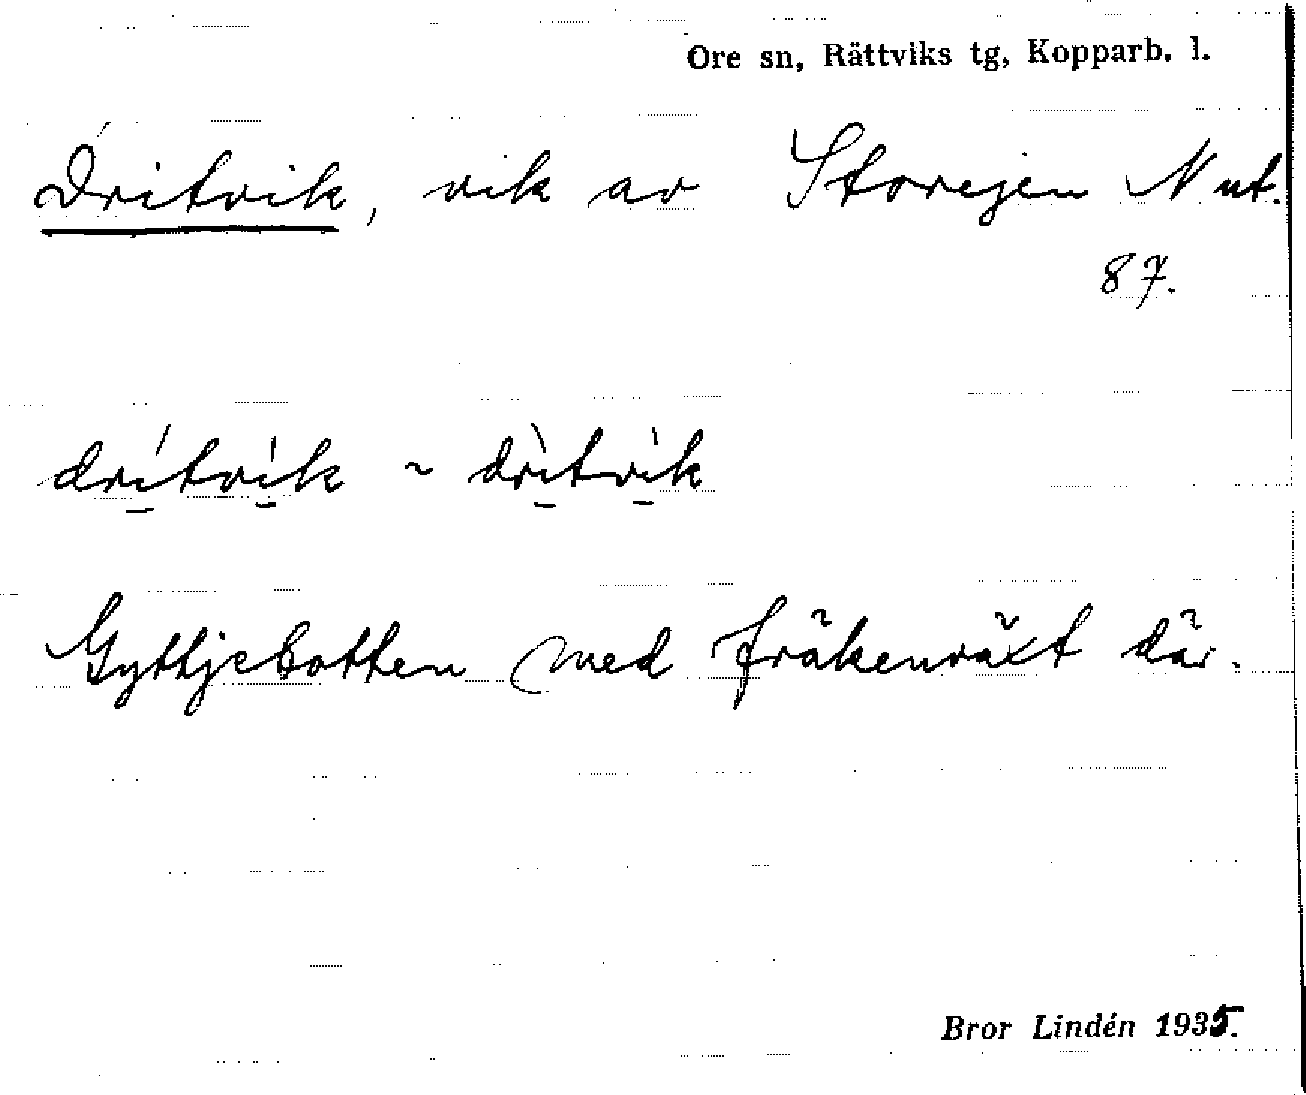 Ore sn, Rättviks tg, Kopparb. l.
Dritvik, vik av Storejen N ut.
87.
dri̱tvi̱k ~ dri̱tvi̱k
Gyttjebotten med fräkenväxt där.
Bror Lindén 1935.